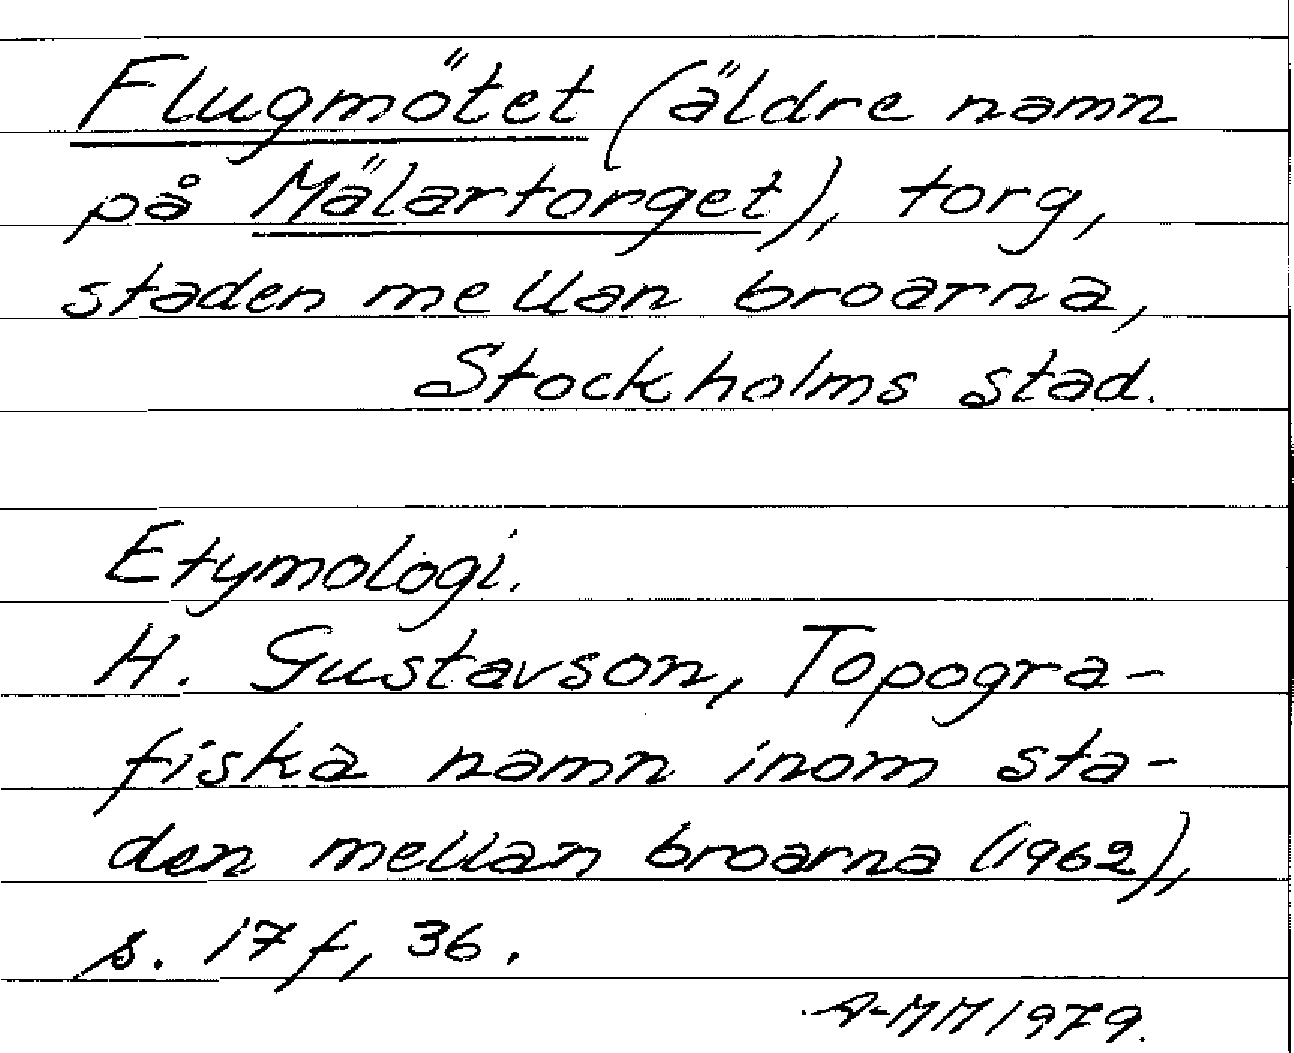 Flugmötet (äldre namn
på Mälartorget), torg,
staden mellan broarna,
Stockholms stad.
Etymologi.
H. Gustavson, Topogra-
fiska namn inom sta-
den mellan broarna (1962),
s. 17 f, 36.
A-MM 1979.